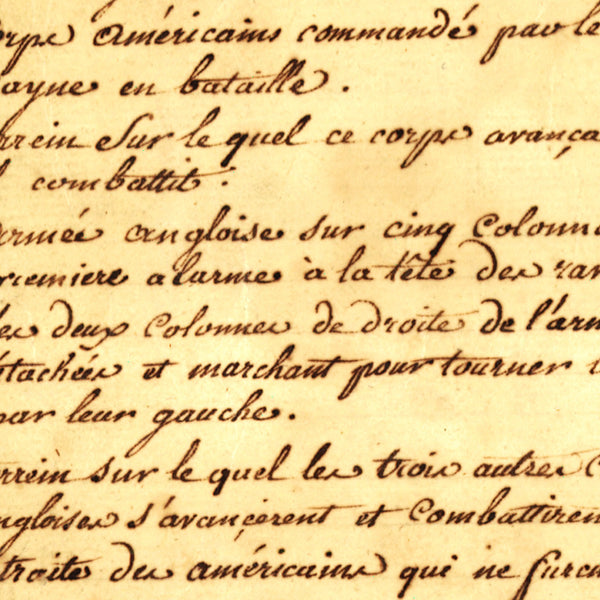 orps américains commandé par le
ayne en bataille.
rrein sur le quel ce corps avança
combattit.
armée angloise sur cinq colonn
premiere alarme à la tête des ran
les deux colonnes de droite de l'arm
étachées et marchant pour tourner
par leur gauche.
rrein sur le quel les trois autres c
ngloises s'avancérent et combattiren
traite des américains qui ne furen